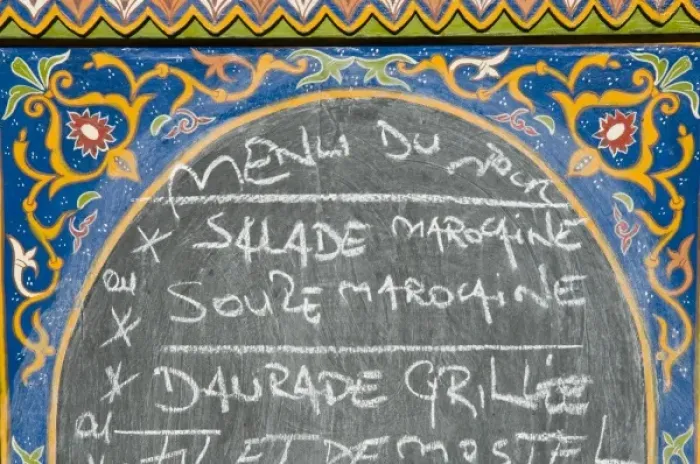 MENU DU JOUR
* SALADE MAROCAINE
ou
* SOUPE MAROCAINE
* DAURADE GRILLÉE
ou
* FILET DE MOSTEL